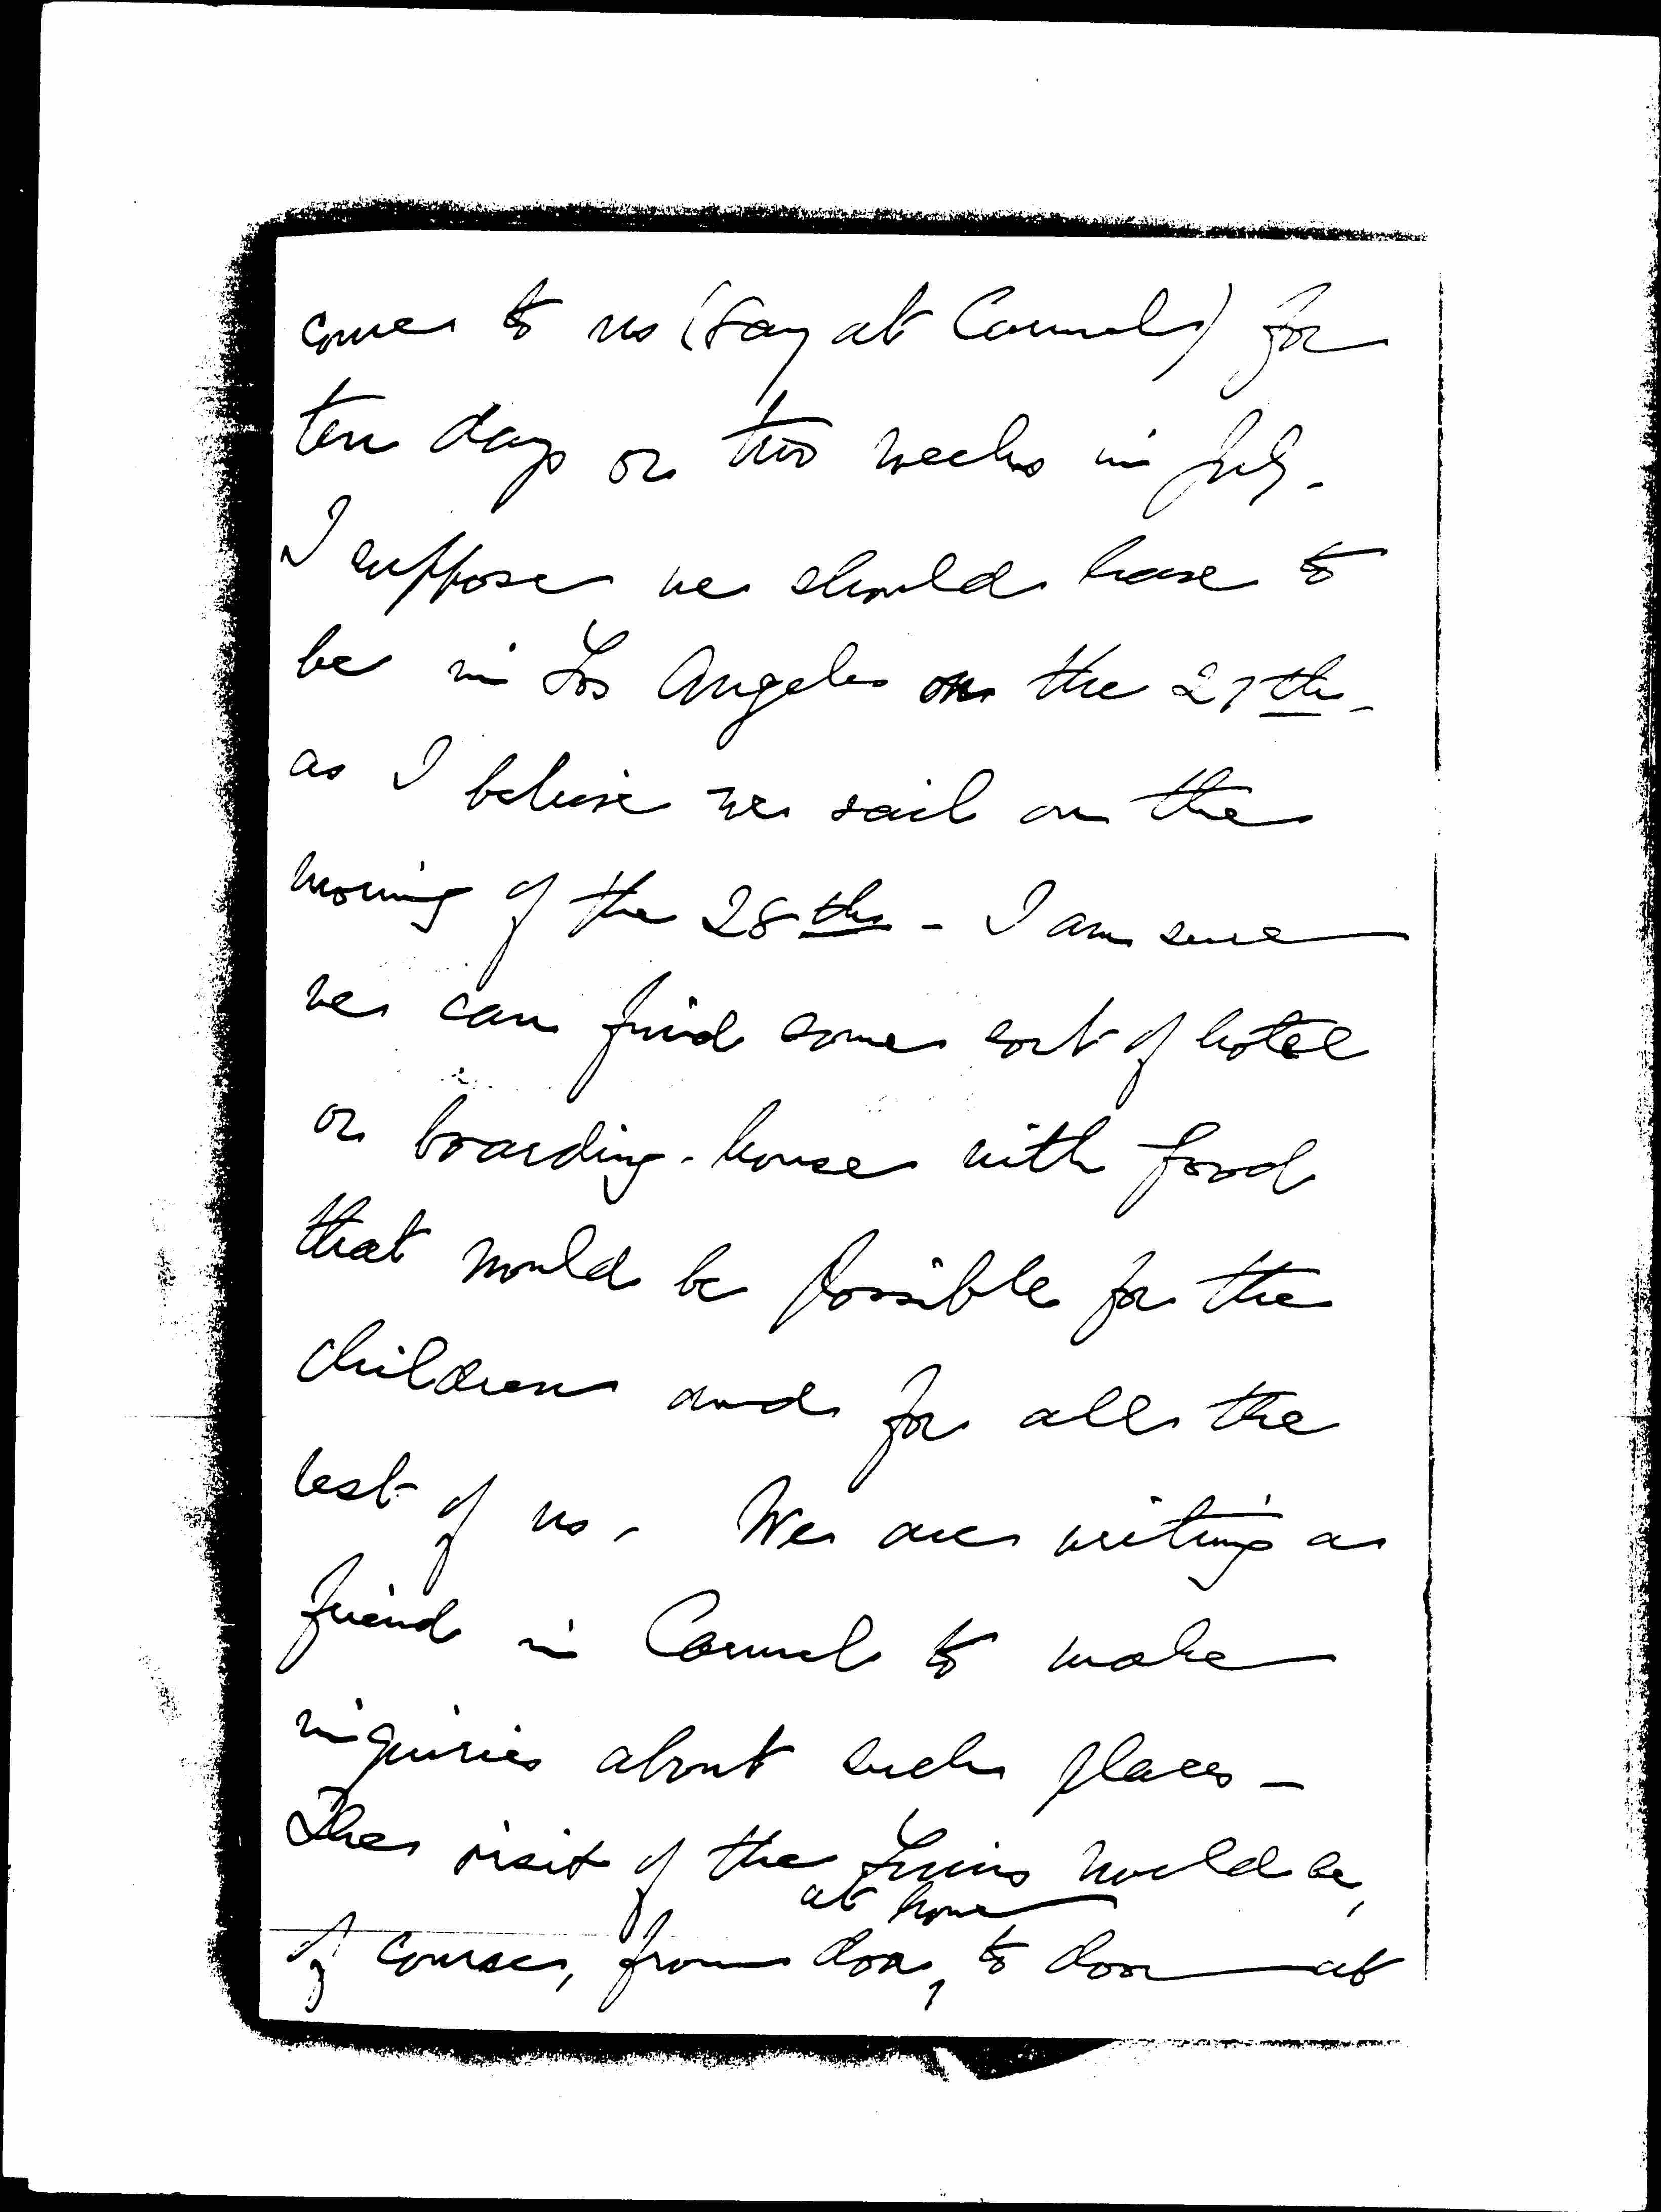 come to us (say at Carmel) for
ten days or two weeks in July.
I suppose we should have to
be in Los Angeles on the 27th -
as I believe we sail on the
morning of the 28th - I am sure
we can find some sort of hotel
or boarding-house with food
that would be possible for the
children and for all the
rest of us. We are writing a
friend in Carmel to make
inquiries about such places -
The visit of the would be,
at home
of course, from door, to door at